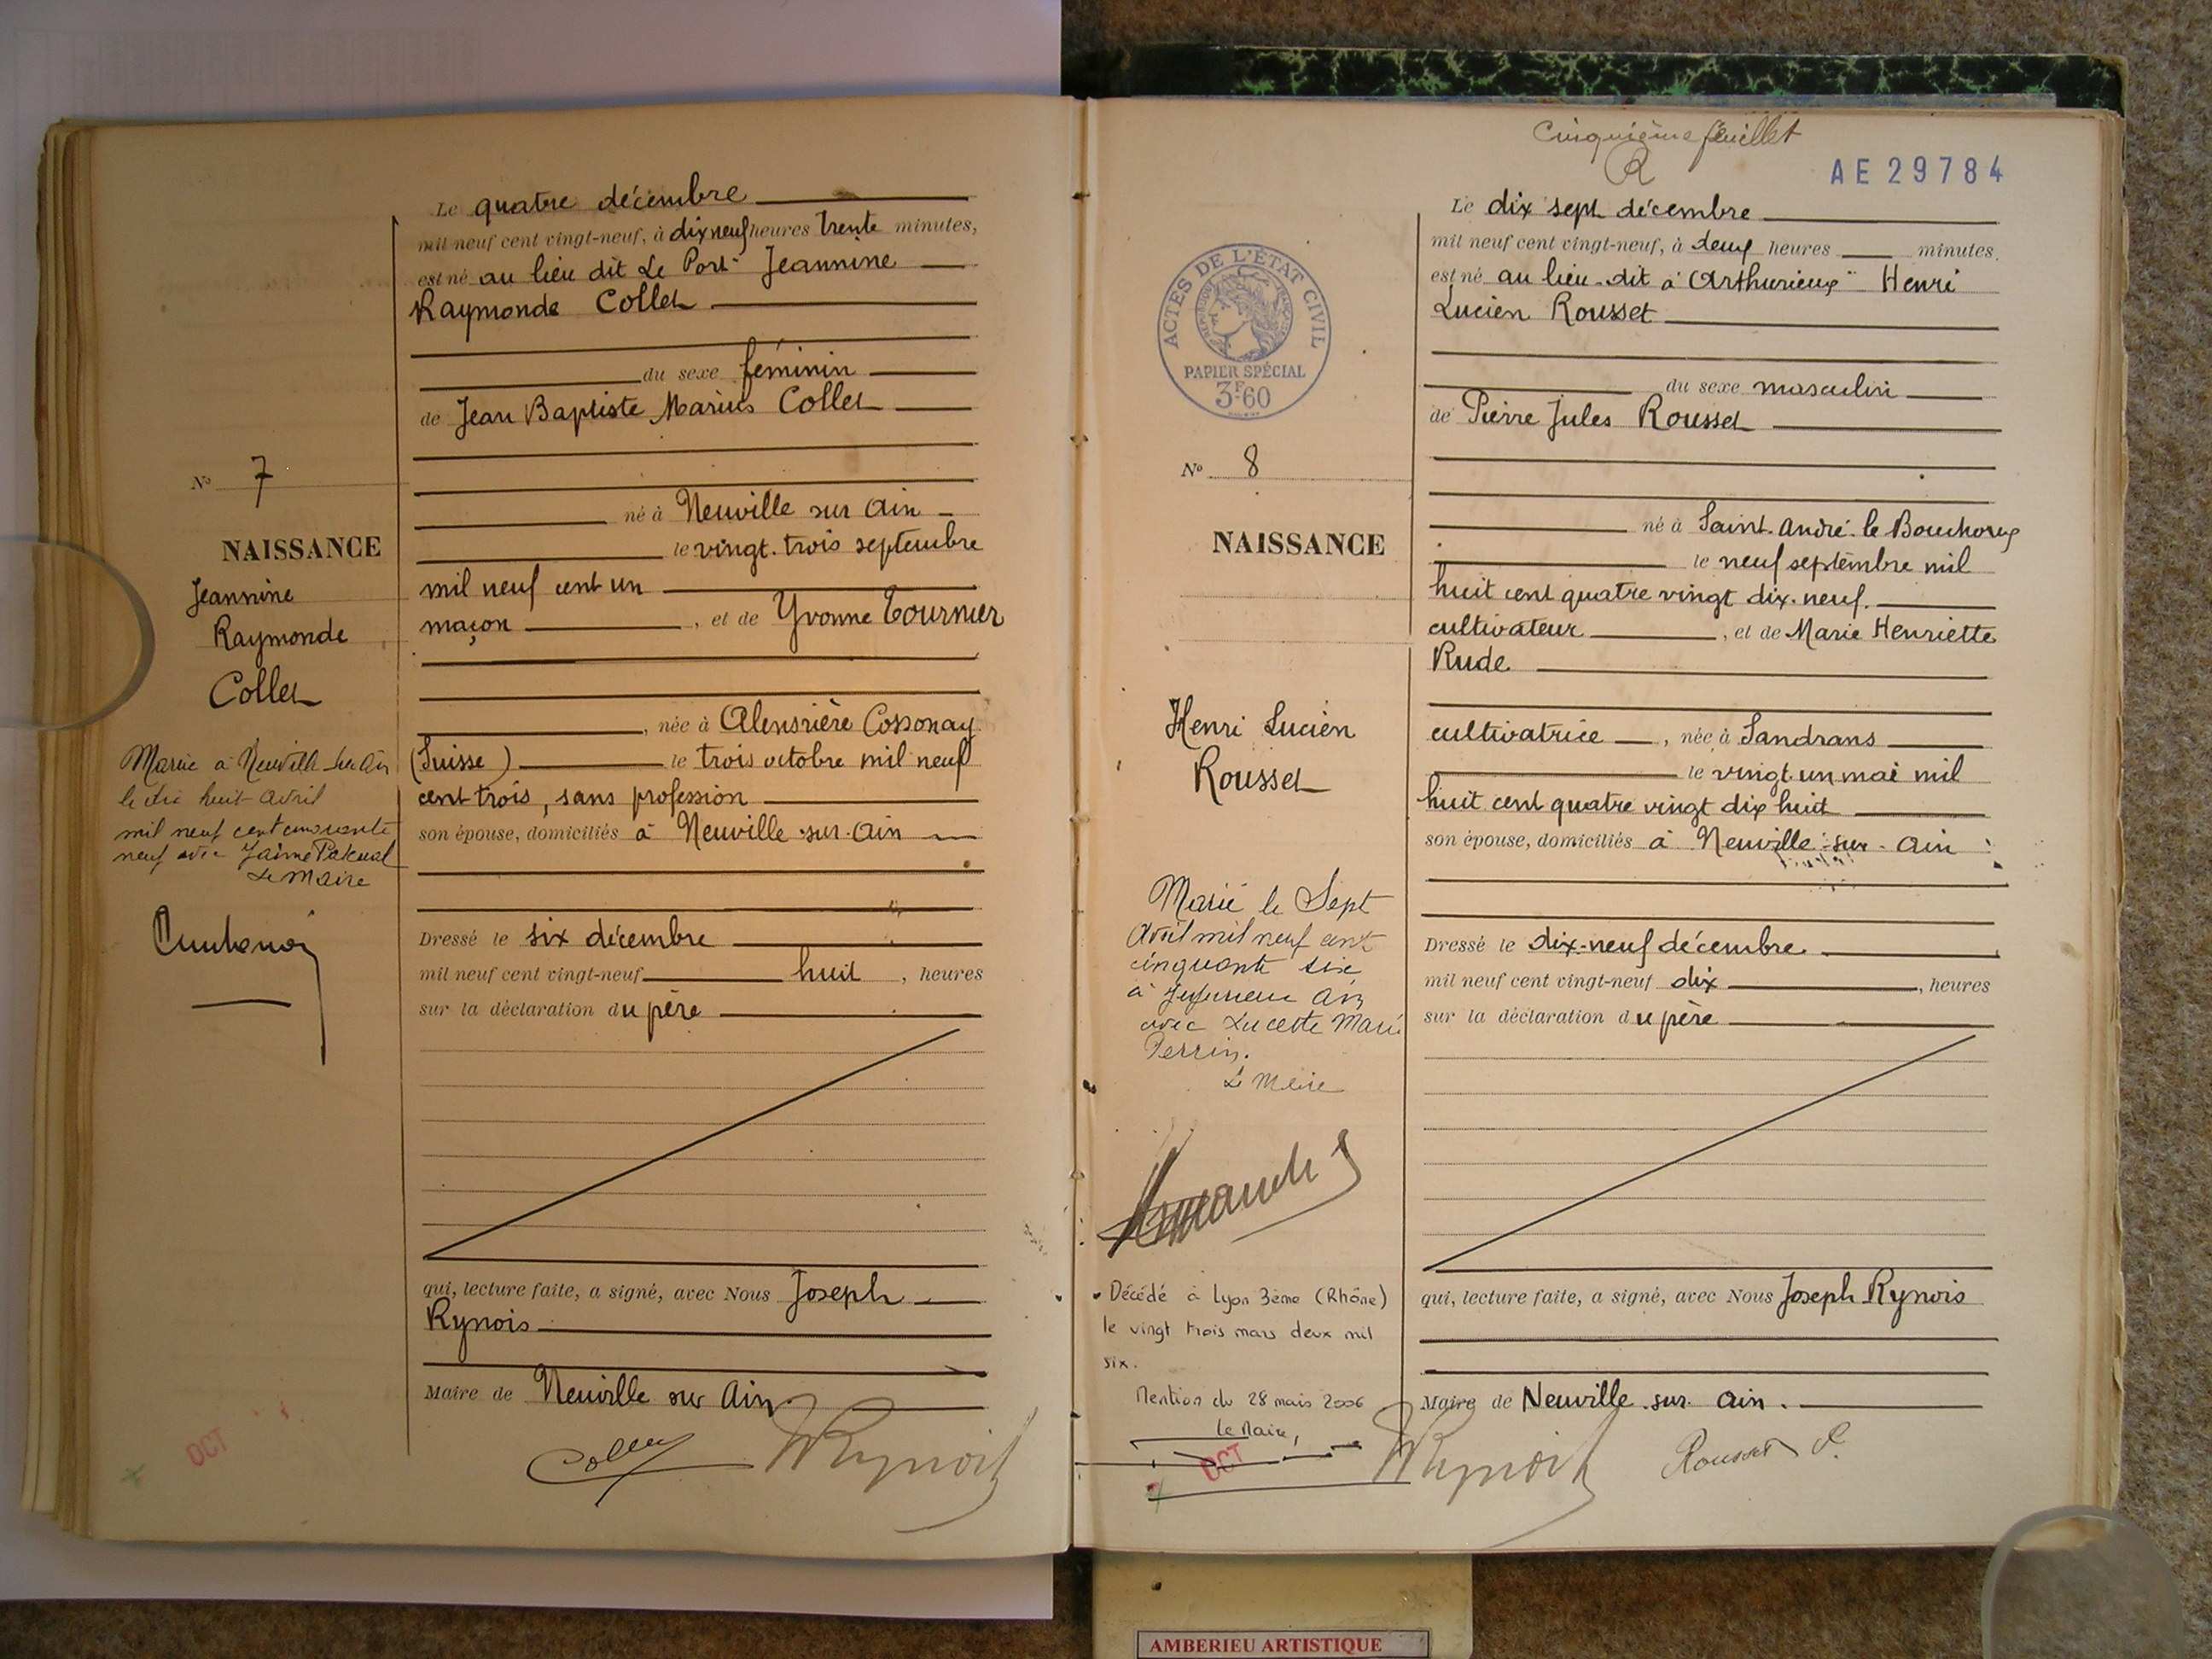 Le quatre décembre
mil neuf cent vingt-neuf, à dix neuf heures trente minutes,
est né au lieu dit Le Port Jeannine
Raymonde Collet
du sexe féminin
de Jean Baptiste Marius Collet
né à Neuville sur Ain
le vingt-trois septembre
mil neuf cent un
maçon, et de Yvonne Tournier
née à Cossonay
(Suisse) le trois octobre mil neuf
cent trois, sans profession
son épouse, domiciliés à Neuville-sur-Ain
Dressé le six décembre
mil neuf cent vingt-neuf huit, heures
sur la déclaration du père
qui, lecture faite, a signé, avec Nous Joseph
Rynois
Maire de Neuville sur Ain
Collet
Rynois
No 7
NAISSANCE
Jeannine
Raymonde
Collet
Mariée à Neuville sur Ain
le dix huit avril
mil neuf cent cinquante
neuf avec Jaime Pascual
Le Maire
OCT
Cinquième feuillet
AE29784
ACTES DE L'ÉTAT CIVIL
PAPIER SPÉCIAL
3F60
No 8
NAISSANCE
Henri Lucien
Rousset
Marié le Sept
Avril mil neuf cent
cinquante six
à Jujurieux Ain
avec Lucette Marie
Perrin.
Le Maire
Décédé à Lyon 3ème (Rhône)
le vingt trois mars deux mil
six.
Mention du 28 mars 2006
Le Maire,
OCT
Le dix sept décembre
mil neuf cent vingt-neuf, à neuf heures minutes
est né au lieu-dit à Henri
Lucien Rousset
du sexe masculin
de Pierre Jules Rousset
né à Saint-André-le-Bouchoux
le neuf septembre mil
huit cent quatre vingt dix-neuf.
cultivateur, et de Marie Henriette
Rude
cultivatrice, née à Sandrans
le vingt un mai mil
huit cent quatre vingt dix huit
son épouse, domiciliés à Neuville-sur-Ain
Dressé le dix-neuf décembre
mil neuf cent vingt-neuf dix, heures
sur la déclaration du père
qui, lecture faite, a signé, avec Nous Joseph Rynois
Maire de Neuville-sur-Ain.
Rynois
Rousset P.
AMBERIEU ARTISTIQUE